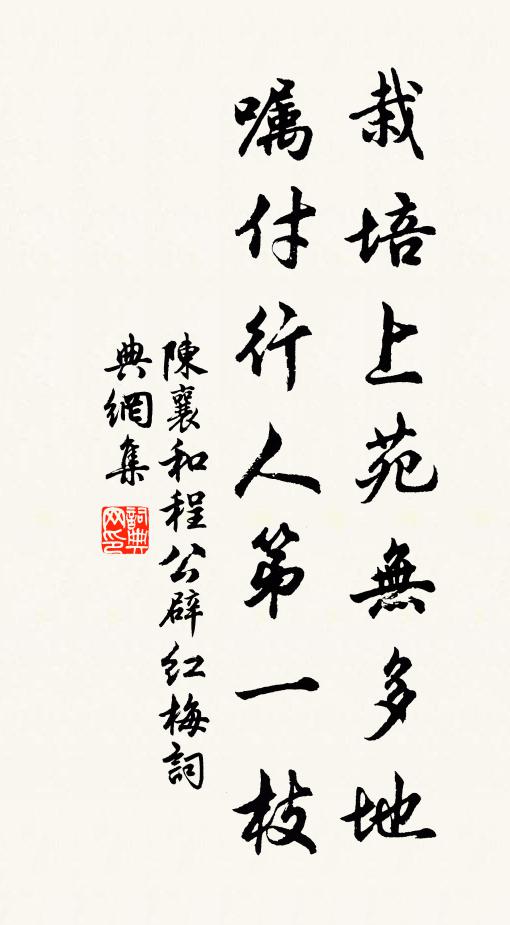 栽培上苑無多地
嘱付行人第一枝
陳襄和程公辟红梅詞
典網集
詞典网印